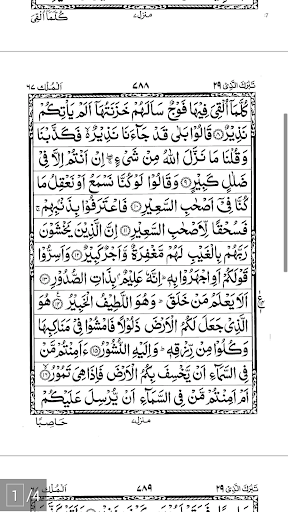 كُلَّمَآ اُلْقِىَ منزل٧
تَبٰرَكَ الَّذِىْ ٢٩ ٧٨٨ اَلْمُلْك ٦٧
كُلَّمَآ اُلْقِىَ فِيْهَا فَوْجٌ سَاَلَهُمْ خَزَنَتُهَآ اَلَمْ يَاْتِكُمْ
نَذِيْرٌ ﴿٨﴾ قَالُوْا بَلٰى قَدْ جَآءَنَا نَذِيْرٌ ۙ فَكَذَّبْنَا
وَقُلْنَا مَا نَزَّلَ اللّٰهُ مِنْ شَىْءٍ ۚ اِنْ اَنْتُمْ اِلَّا فِىْ
ضَلٰلٍ كَبِيْرٍ ﴿٩﴾ وَقَالُوْا لَوْ كُنَّا نَسْمَعُ اَوْ نَعْقِلُ مَا
كُنَّا فِىْٓ اَصْحٰبِ السَّعِيْرِ ﴿١٠﴾ فَاعْتَرَفُوْا بِذَنْۢبِهِمْ ۚ
فَسُحْقًا لِّاَصْحٰبِ السَّعِيْرِ ﴿١١﴾ اِنَّ الَّذِيْنَ يَخْشَوْنَ
رَبَّهُمْ بِالْغَيْبِ لَهُمْ مَّغْفِرَةٌ وَّاَجْرٌ كَبِيْرٌ ﴿١٢﴾ وَاَسِرُّوْا
قَوْلَكُمْ اَوِ اجْهَرُوْا بِهٖ ؕ اِنَّهٗ عَلِيْمٌۢ بِذَاتِ الصُّدُوْرِ ﴿١٣﴾
اَلَا يَعْلَمُ مَنْ خَلَقَ ؕ وَهُوَ اللَّطِيْفُ الْخَبِيْرُ ﴿١٤﴾ هُوَ
الَّذِىْ جَعَلَ لَكُمُ الْاَرْضَ ذَلُوْلًا فَامْشُوْا فِىْ مَنَاكِبِهَا
وَكُلُوْا مِنْ رِّزْقِهٖ ؕ وَاِلَيْهِ النُّشُوْرُ ﴿١٥﴾ ءَاَمِنْتُمْ مَّنْ
فِى السَّمَآءِ اَنْ يَّخْسِفَ بِكُمُ الْاَرْضَ فَاِذَا هِىَ تَمُوْرُ ﴿١٦﴾
اَمْ اَمِنْتُمْ مَّنْ فِى السَّمَآءِ اَنْ يُّرْسِلَ عَلَيْكُمْ
منزل٧ حَاصِبًا
تَبٰرَكَ الَّذِىْ ٢٩ ٧٨٩ اَلْمُلْك ٦٧
1 /4